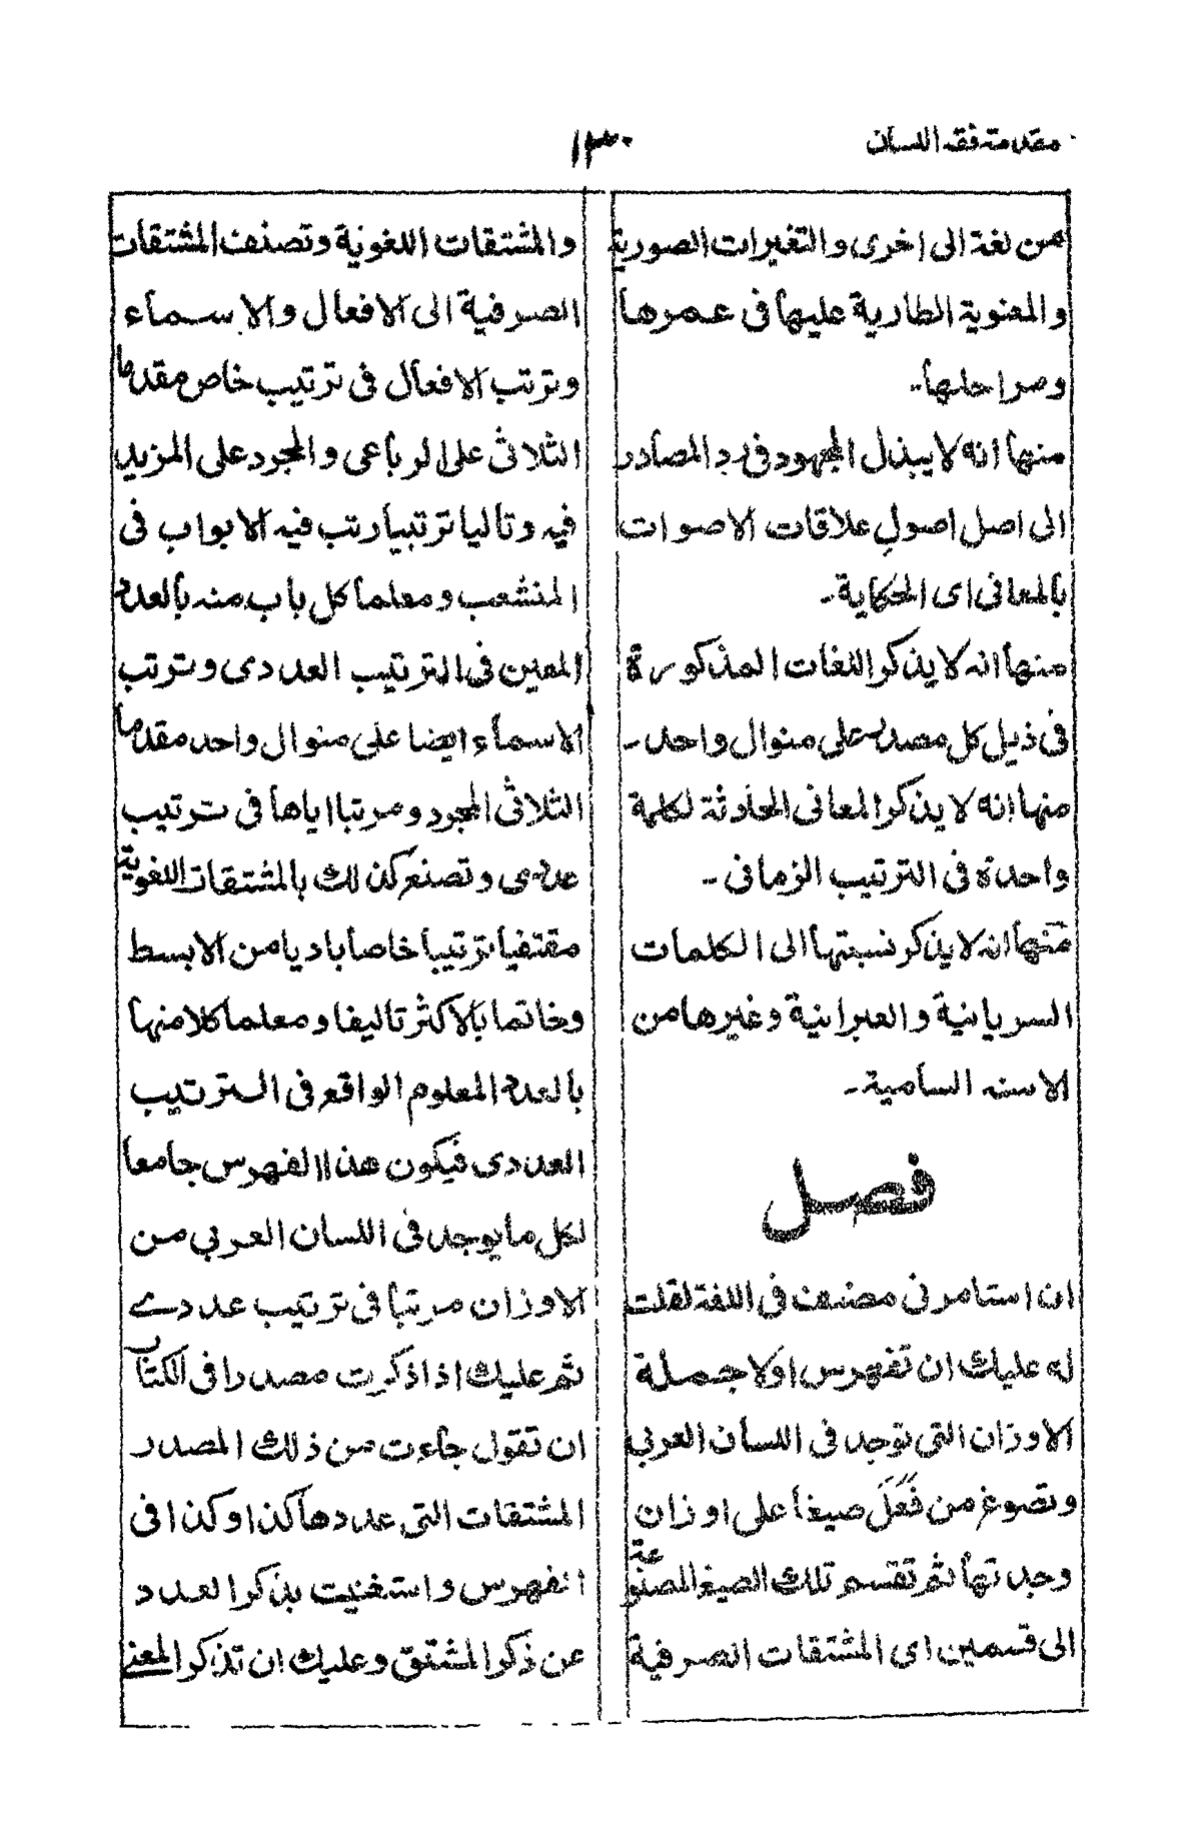 مقدمة فقه اللسان
١٣٠
من لغة الى اخرى والتغيرات الصورية
والمعنوية الطارية عليها فى عمرها
ومراحلها۔
منها انه لا يبذل المجهود فى رد المصادر
الى اصل اصول علاقات الاصوات
بالمعانى اى الحكاية۔
منها انه لا يذكر اللغات المذكورة
فى ذيل كل مصدر على منوال واحد۔
منها انه لا يذكر المعانى الحادثة لكلمة
واحدة فى الترتيب الزمانى۔
منها انه لا يذكر نسبتها الى الكلمات
السريانية والعبرانية وغيرها من
الاسنه السامية۔
فصل
ان استامرنى مصنف فى اللغة لقلت
له عليك ان تفهرس اولا جملة
الاوزان التى توجد فى اللسان العربي
وتصوغ من فَعَلَ صيغا على اوزان
وجدتها ثم تقسم تلك الصيغ المصنوعة
الى قسمين اى المشتقات الصرفية
والمشتقات اللغوية وتصنف المشتقات
الصرفية الى الافعال والاسماء
وترتب الافعال فى ترتيب خاص مقدما
الثلاثى على الرباعى والمجرد على المزيد
فيه وتاليا ترتيبا رتب فيه الابواب فى
المنشعب ومعلما كل باب منه بالعدد
المعين فى الترتيب العددى وترتب
الاسماء ايضا على منوال واحد مقدما
الثلاثى المجرد ومرتبا اياها فى ترتيب
عددى وتصنع كذلك بالمشتقات اللغوية
مقتفيا ترتيبا خاصا باديا من الابسط
وخاتما بالاكثر تاليفا ومعلما كلا منها
بالعدد المعلوم الواقع فى الترتيب
العددى فيكون هذا الفهرس جامعا
لكل ما يوجد فى اللسان العربي من
الاوزان مرتبا فى ترتيب عددے
ثم عليك اذا ذكرت مصدرا فى الكتاب
ان تقول جاءت من ذلك المصدر
المشتقات التى عددها كذا وكذا فى
الفهرس واستغنيت بذكر العدد
عن ذكر المشتق وعليك ان تذكر المعنے